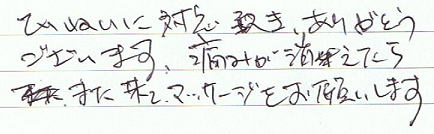 ていねいに対応頂き、ありがとう
ございます、痛みが消えてたら
また来て、マッサージをお願いします